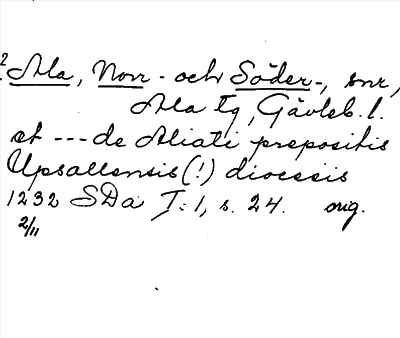 2 Ala, Norr- och Söder-, snr,
Ala tg, Gävleb. l.
et --- de Aliati prepositis
Upsallensis (!) diocesis
1232 SDa I: 1, s. 24. orig.
2/11